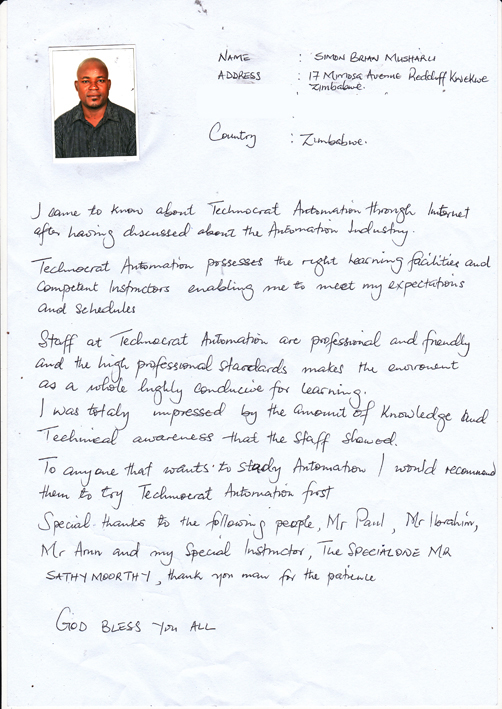 NAME : SIMON BRIAN MUSHARU
ADDRESS : 17 Mimosa Avenue Redcliff Kwekwe
Zimbabwe.
Country : Zimbabwe.
I came to know about Technocrat Automation through Internet
after having discussed about the Automation Industry.
Technocrat Automation possesses the right learning facilities and
Competent Instructors enabling me to meet my expectations
and schedules
Staff at Technocrat Automation are professional and friendly
and the high professional standards makes the enviroment
as a whole highly conducive for learning.
I was totaly impressed by the amount of Knowledge and
Technical awareness that the Staff showed.
To anyone that wants to study Automation I would recommend
them to try Technocrat Automation first
Special thanks to the following people, Mr Paul, Mr Ibrahim,
Mr Arun and my Special Instructor, THE SPECIAL ONE MR
SATHY MOORTHY, thank you man for the patience
GOD BLESS YOU ALL